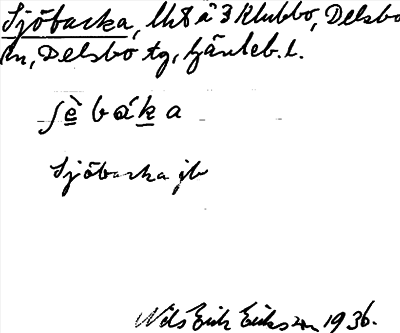 Sjöbacka, lht å 3 Klubbo, Delsbo
sn, Delsbo tg, Gävleb. l.
ʃè båka
Sjöbacka jb
Nils Erik Eriksson 1936.